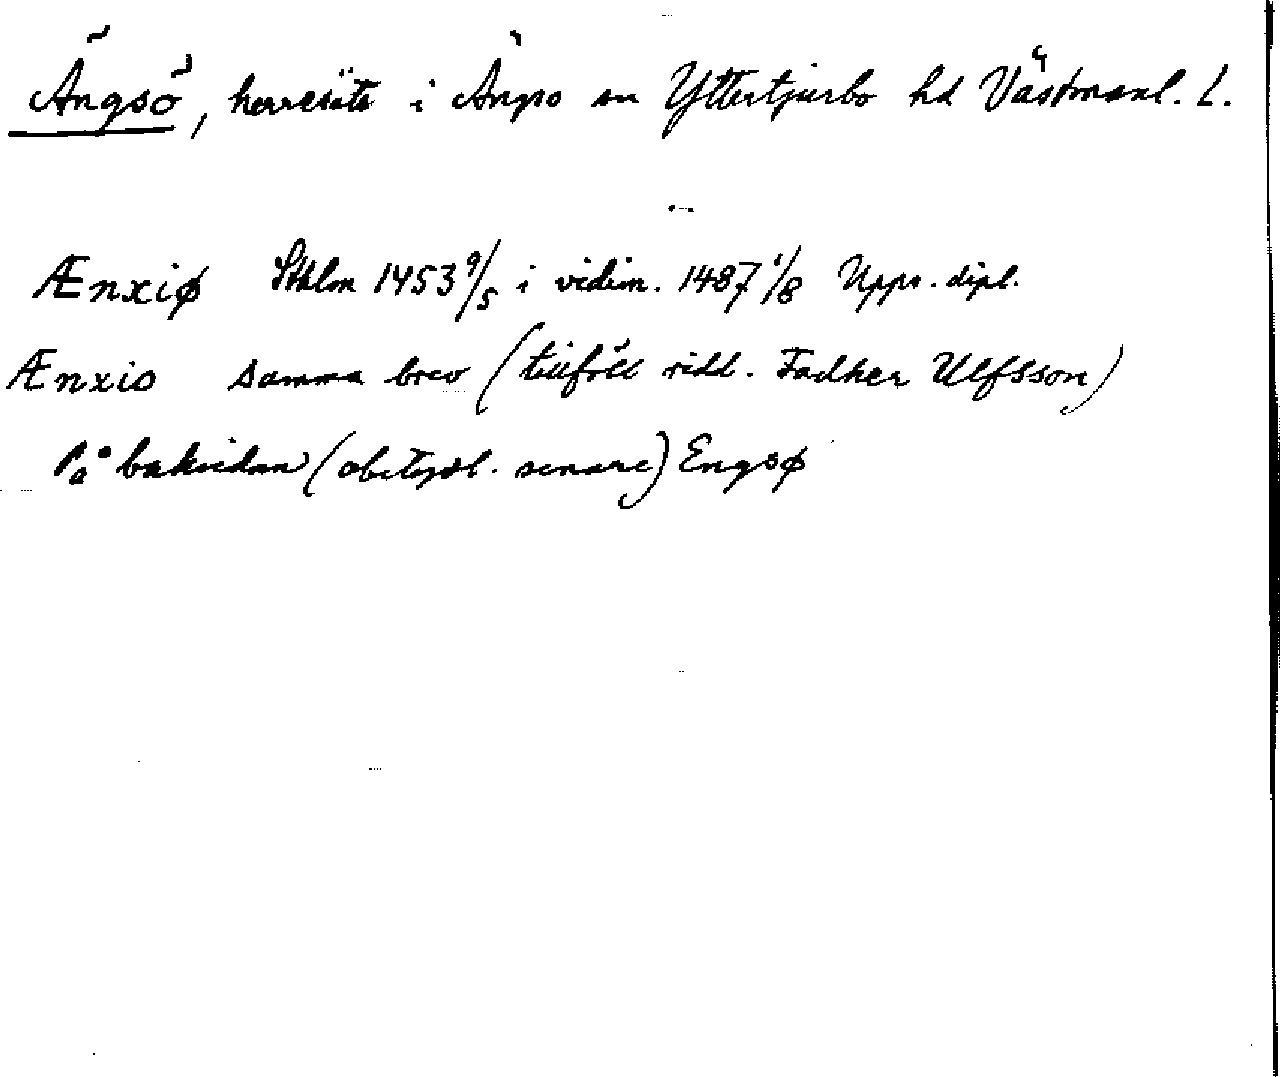 Ängsö, herresäte i Ängsö sn Yttertjurbo hd Västmanl. L.
Ænxiø Sthlm 1453 9/5 i vidim. 1487 1/8 Upps. dipl.
Ænxio samma brev (tillföll ridd. Fadher Ulfsson)
På baksidan (obetydl. senare) Engsø